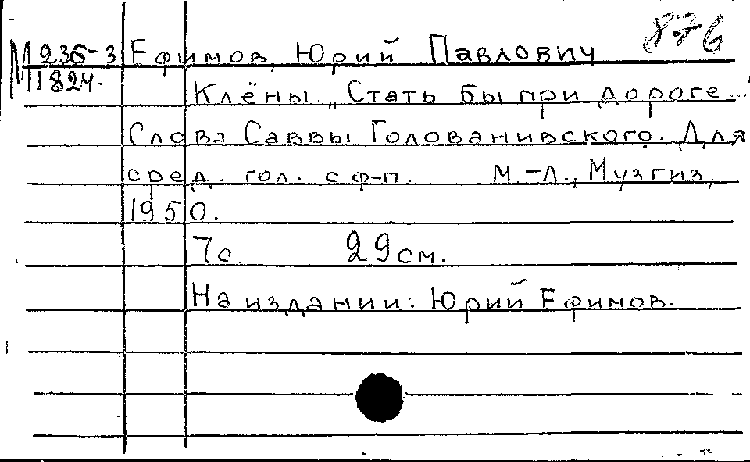 876
М 235-3 Ефимов, Юрий Павлович
1824.
Клёны „Стать бы при дороге...
Слова Саввы Голованивского. Для
сред. гол. с ф-п. М.-Л., Музгиз,
1950.
7с. 29см.
На издании: Юрий Ефимов.